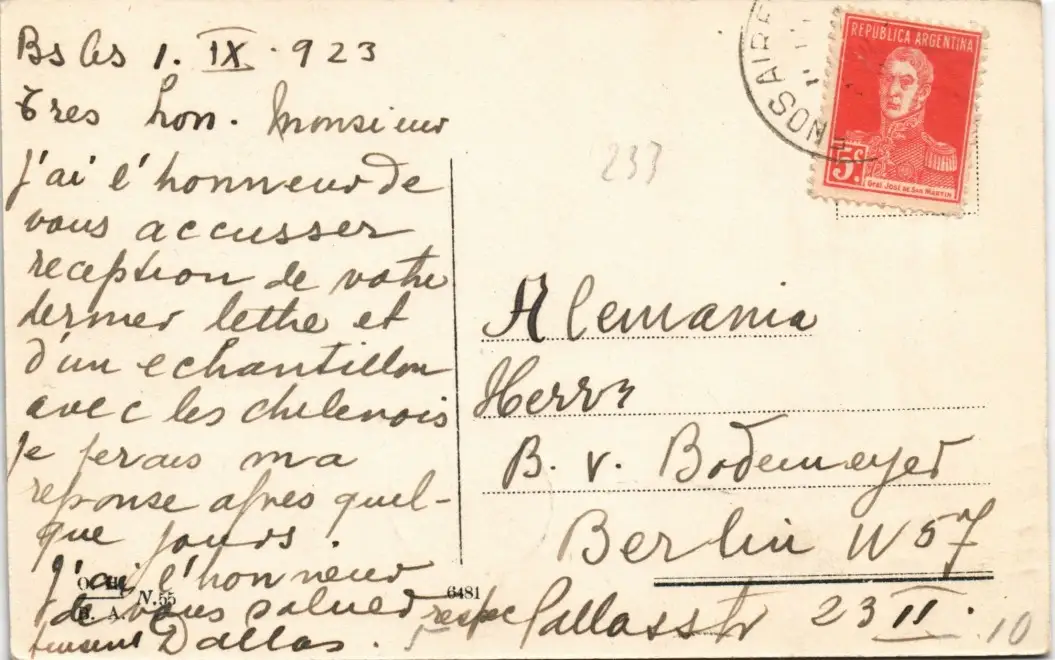 Bs As 1. IX. 923
Tres hon. Monsieur
J'ai l'honneur de
vous accusser
reception de votre
dernier lettre et
d'un echantillon
avec les chilenois
je ferais ma
reponse apres quel-
que jours.
J'ai l'honneur
de vous saluer respec
Dallas.
O. H.
N. 55
B. A.
6481
233
NOS AIRE
REPUBLICA ARGENTINA
5c.
Gral José de San Martin
Alemania
Herrn
B. v. Bodemeyer
Berlin W 57
Pallasstr 23 II.
10